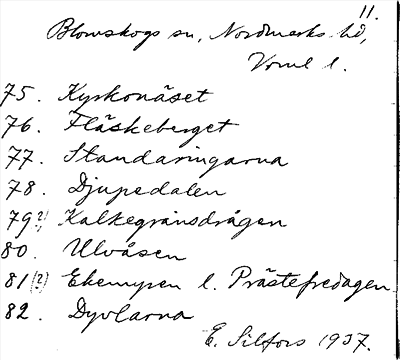 11.
Blomskogs sn, Nordmarks hd,
Värml l.
75. Kyrkonäset
76. Fläskeberget
77. Standaringarna
78. Djupedalen
79 2) Kalkegränsdrågen
80. Ulvåsen
81 (2) Ekemyren l. Prästefredagen
82. Dyvlarna
E. Silfors 1937.